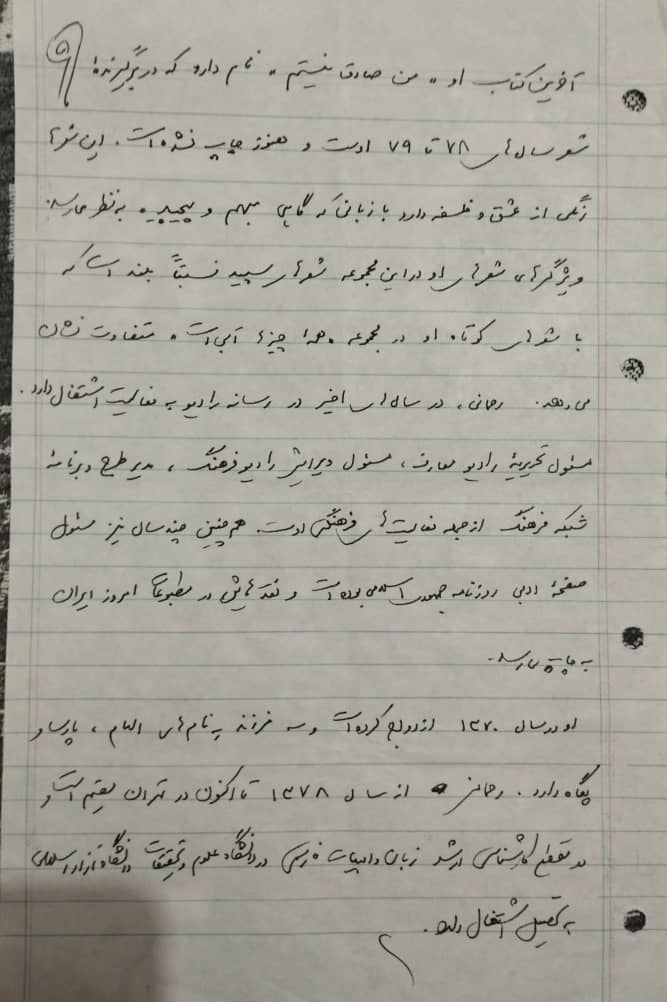 آخرین کتاب او «من صادق نیستم» نام دارد که در برگیرندهٔ
شعر سال‌های ۷۸ تا ۷۹ اوست و هنوز چاپ نشده است. این شعرها
رنگی از عشق و فلسفه دارد با زبانی که گاهی مبهم و پیچیده به نظر می‌رسد.
ویژگی‌های شعرهای او در این مجموعه شعرهای سپید نسبتاً بلند است که
با شعرهای کوتاه او در مجموعه «همهٔ چیزها آبی است» متفاوت نشان
می‌دهد. رحمانی، در سال‌های اخیر در رسانه رادیو به فعالیت اشتغال دارد.
مسئول تحریریهٔ رادیو معارف، مسئول ویرایش رادیو فرهنگ، مدیر طرح و برنامهٔ
شبکه فرهنگ از جمله فعالیت‌های فرهنگی اوست. همچنین چند سال نیز مسئول
صفحهٔ ادبی روزنامه جمهوری اسلامی بوده است و نقدهایش در مطبوعات امروز ایران
به چاپ می‌رسد.
او در سال ۱۳۷۰ ازدواج کرده است و سه فرزند به نام‌های الهام، پارسا و
پگاه دارد. رحمانی از سال ۱۳۷۸ تا کنون در تهران مقیم است و
در مقطع کارشناسی ارشد زبان و ادبیات فارسی در دانشگاه علوم و تحقیقات دانشگاه آزاد اسلامی
به تحصیل اشتغال دارد.